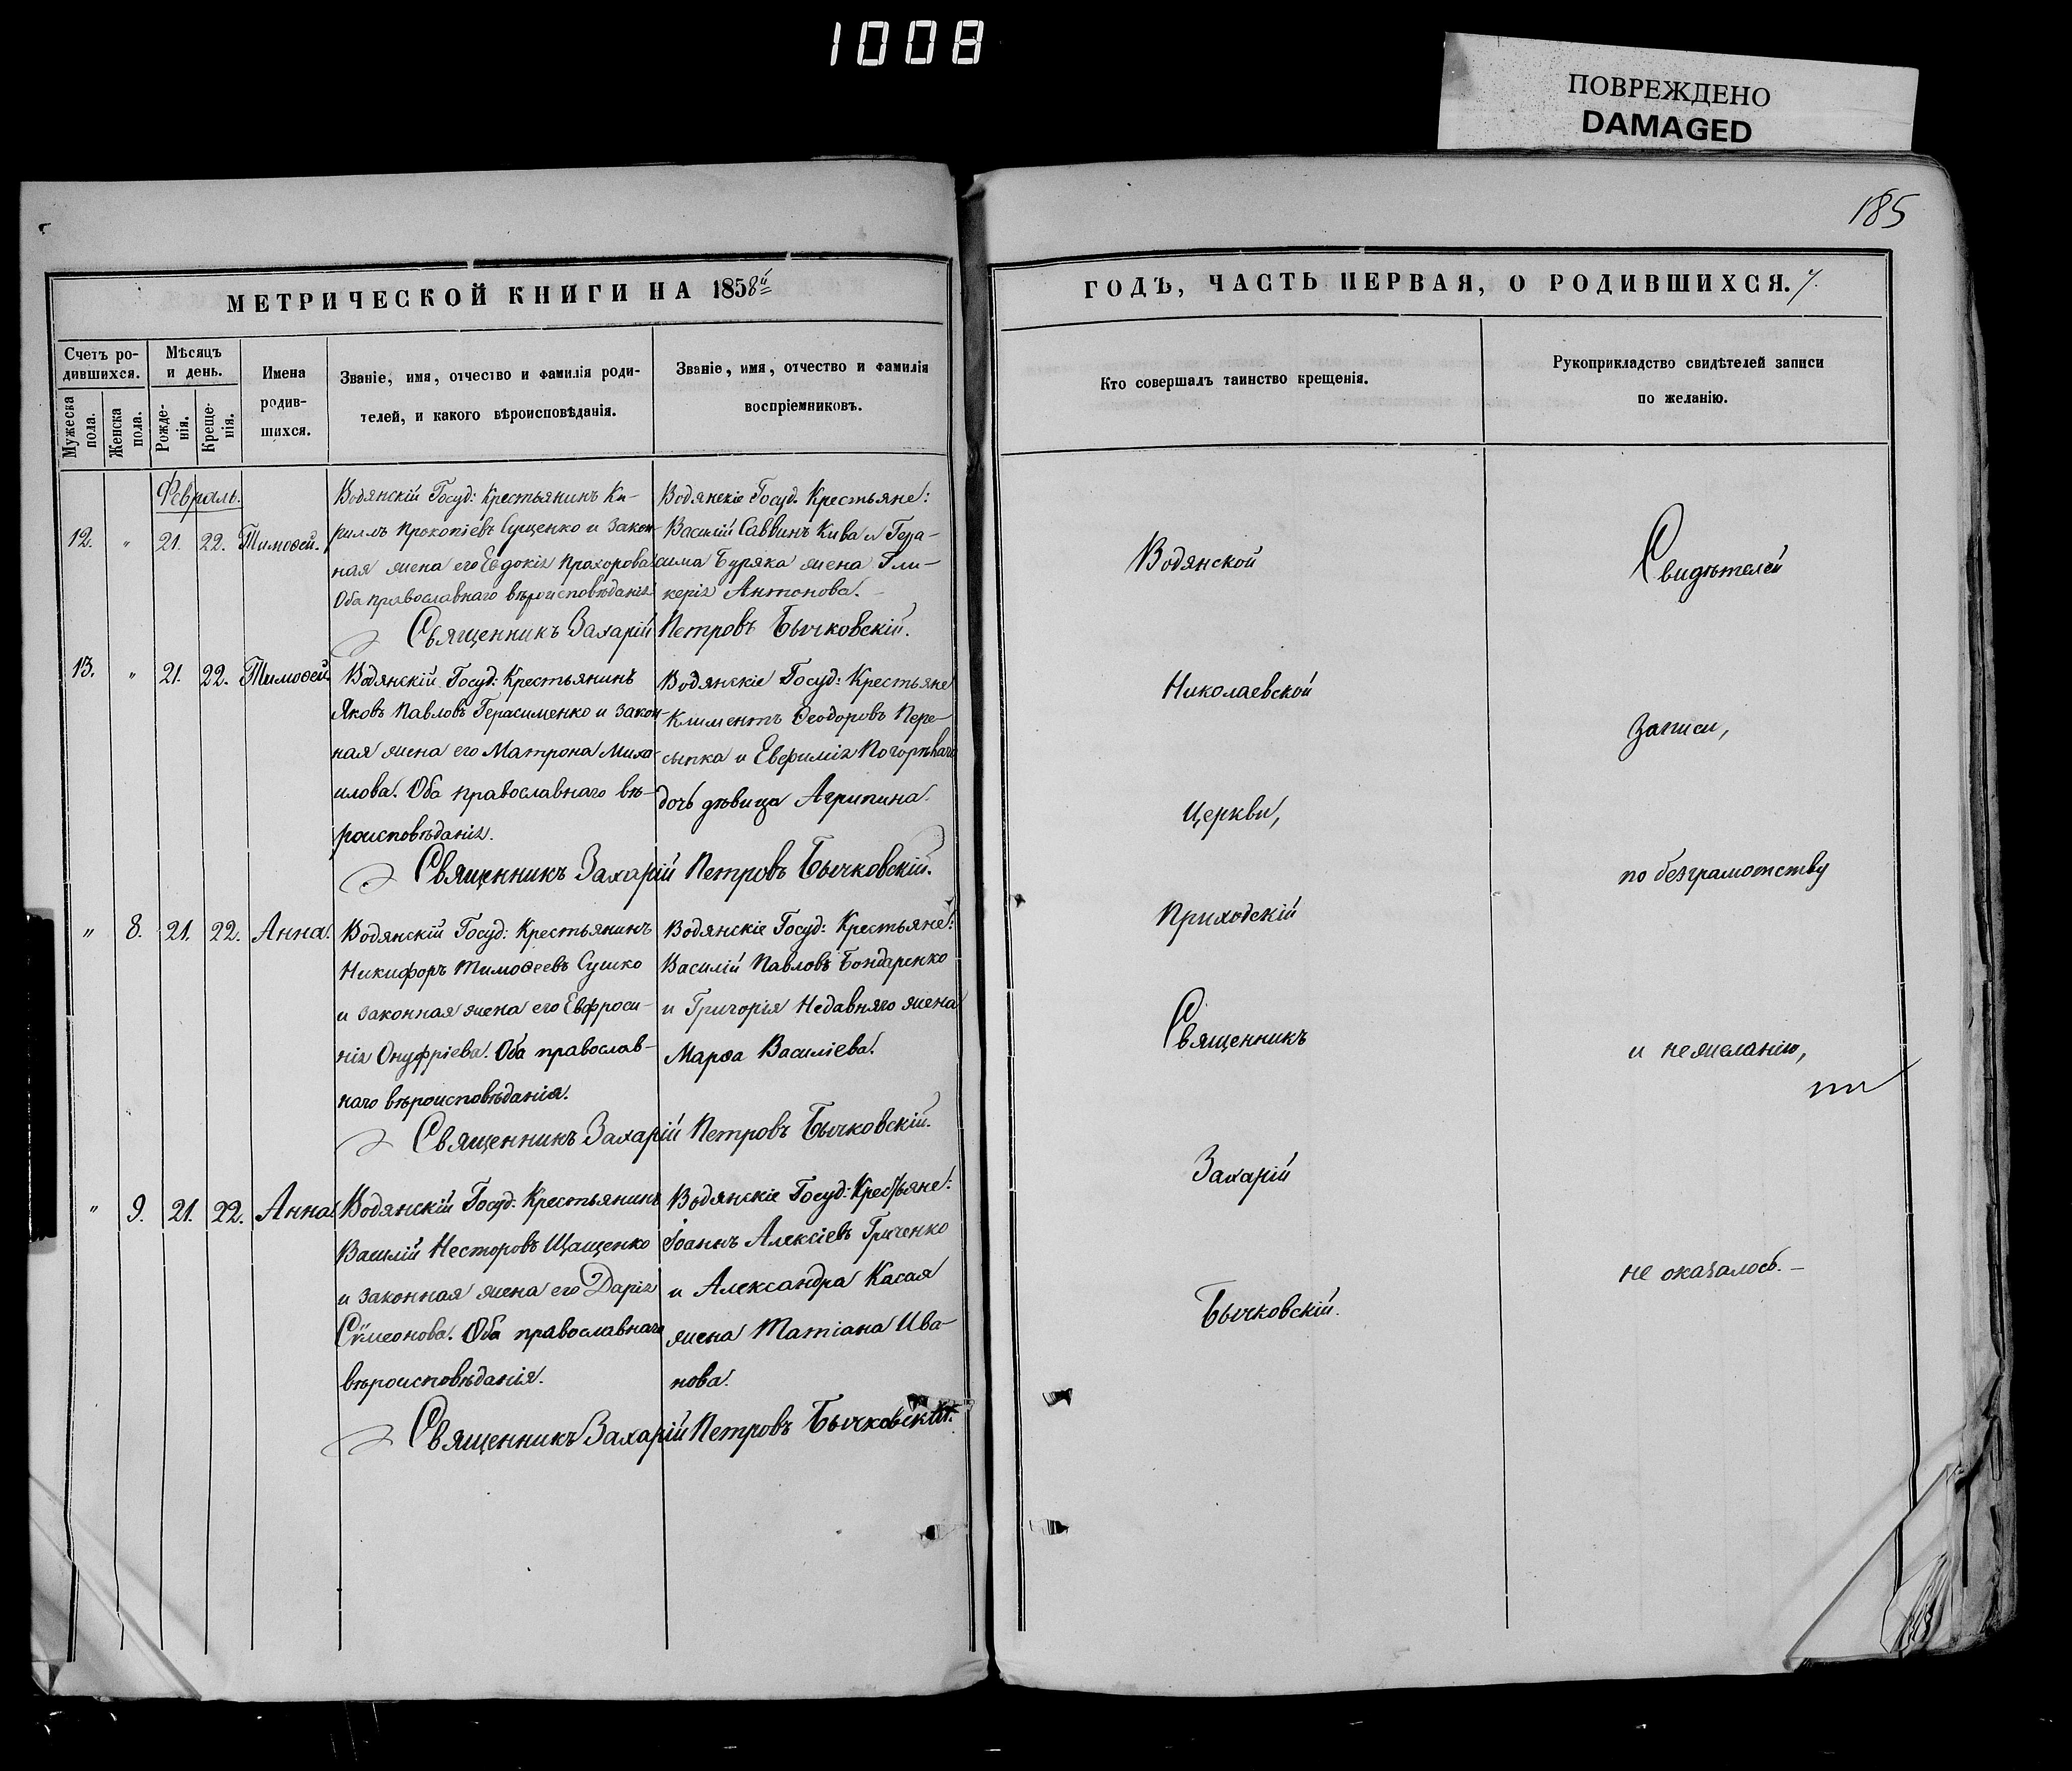 1008
ПОВРЕЖДЕНО
DAMAGED
185
МЕТРИЧЕСКОЙ КНИГИ НА 1858й
Счетъ ро-
дившихся.
Мужеска
пола.
Женска
пола.
Мѣсяцъ
и день.
Рожде-
нія.
Креще-
нія.
Имена
родив-
шихся.
Званіе, имя, отчество и фамилія роди-
телей, и какого вѣроисповѣданія.
Званіе, имя, отчество и фамилія
воспріемниковъ.
Февраль.
12. " 21. 22. Тимоѳей.
Водянскій Госуд: Крестьянинъ Ки-
риллъ Прокопіевъ Сущенко и закон-
ная жена его Евдокія Прохорова
Оба православнаго вѣроисповѣданія
Водянскіе Госуд. Крестьяне:
Василій Саввинъ Кива и Гера-
сима Буряка жена Гли-
керія Антонова.
Священникъ Захарій Петровъ Бычковскій.
13. " 21. 22. Тимоѳей.
Водянскій Госуд: Крестьянинъ
Яковъ Павловъ Герасименко и закон-
ная жена его Матрона Миха-
илова. Оба православнаго вѣ-
роисповѣданія.
Водянскіе Госуд: Крестьяне
Климентъ Ѳеодоровъ Пере-
сыпка и Евфимія Погорѣлаго
дочь дѣвица Агрипина.
Священникъ Захарій Петровъ Бычковскій.
" 8. 21. 22. Анна.
Водянскій Госуд: Крестьянинъ
Никифоръ Тимоѳеевъ Сушко
и законная жена его Евфроси-
нія Онуфріева. Оба православ-
наго вѣроисповѣданія.
Водянскіе Госуд: Крестьяне:
Василій Павловъ Бондаренко
и Григорія Недавняго жена
Марѳа Василіева.
Священникъ Захарій Петровъ Бычковскій.
" 9. 21. 22. Анна
Водянскій Госуд: Крестьянинъ
Василій Несторовъ Щащенко
и законная жена его Дарія
Сѵмеонова. Оба православнаго
вѣроисповѣданія.
Водянскіе Госуд: Крестьяне:
Іоаннъ Алексіевъ Гриченко
и Александра Касая
жена Татіана Ива-
нова.
Священникъ Захарій Петровъ Бычковскій.
ГОДЪ, ЧАСТЬ ПЕРВАЯ, О РОДИВШИХСЯ.
Кто совершалъ таинство крещенія.
Рукоприкладство свидѣтелей записи
по желанію.
Водянской
Николаевской
Церкви,
Приходскій
Священникъ
Захарій
Бычковскій.
Свидѣтелей
Записи,
по безграмотству
и нежеланію,
не оказалось.